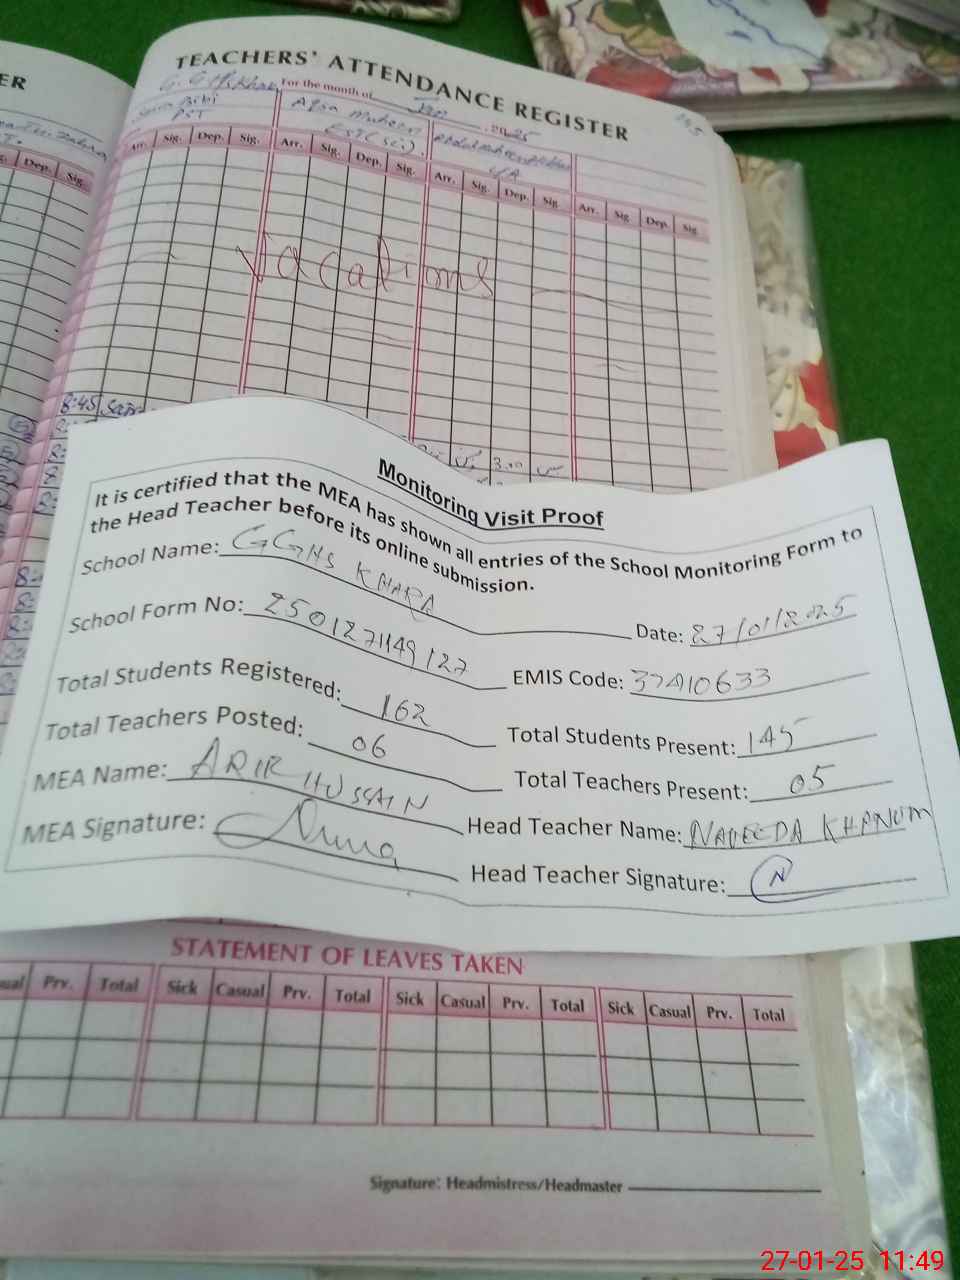 ER
TEACHERS' ATTENDANCE REGISTER
For the month of Jan 2025
PST
EST (Sci)
Arr. Sig. Dep. Sig. Arr. Sig. Dep. Sig. Arr. Sig. Dep. Sig. Arr. Sig. Dep. Sig.
Dep. Sig.
Vacations
8:45
3.00
Monitoring Visit Proof
It is certified that the MEA has shown all entries of the School Monitoring Form to
the Head Teacher before its online submission.
School Name: GGHS KHARA
Date: 27/01/2025
School Form No: 2501271149127
EMIS Code: 37410633
Total Students Registered: 162
Total Students Present: 145
Total Teachers Posted: 06
Total Teachers Present: 05
MEA Name: ARIR HUSSAIN
Head Teacher Name: NAVEEDA KHANUM
MEA Signature:
Head Teacher Signature: N
STATEMENT OF LEAVES TAKEN
Prv. Total Sick Casual Prv. Total Sick Casual Prv. Total Sick Casual Prv. Total
Signature: Headmistress/Headmaster
27-01-25 11:49